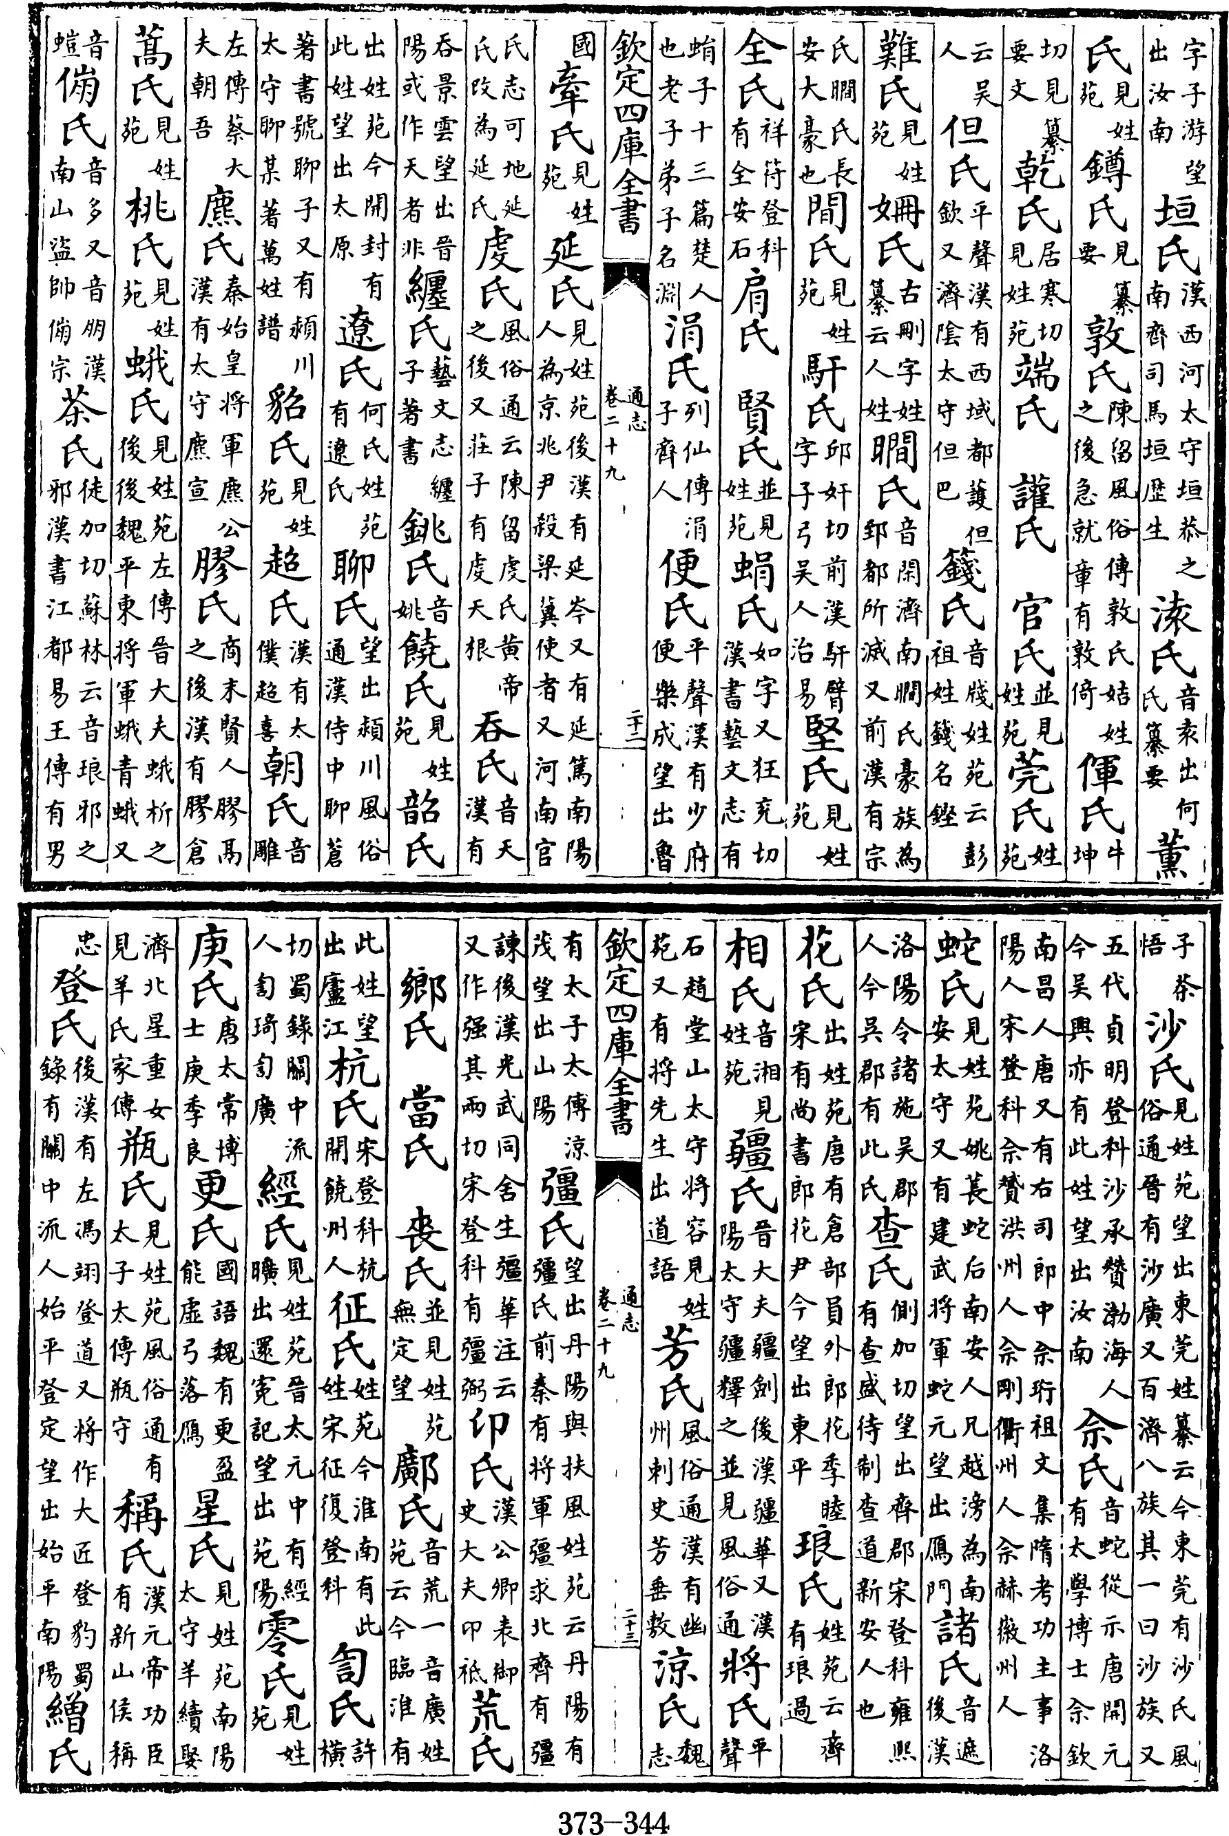 字子游望出汝南垣氏漢西河太守垣恭之南齊司馬垣歴生滚氏音衮出何氏纂要薫
氏見姓苑鐏氏見纂要敦氏陳留風俗傳敦氏姞姓之後急就章有敦倚㑮氏牛坤
切見纂要文乾氏居寒切見姓苑端氏讙氏官氏並見姓苑莞氏姓苑
云吴人但氏平聲漢有西域都護但欽又濟陰太守但巴籛氏音牋姓苑云彭祖姓籛名鏗
難氏見姓苑姍氏古刪字姓纂云人姓瞯氏音閑濟南瞯氏豪族為郅都所滅又前漢有宗
氏瞯氏長安大豪也間氏見姓苑馯氏邱奸切前漢馯臂字子弓吴人治易堅氏見姓苑
全氏祥符登科有全安石肩氏賢氏並見姓苑蜎氏如字又狂兖切漢書藝文志有
蜎子十三篇楚人也老子弟子名淵涓氏列仙傳涓子齊人便氏平聲漢有少府便樂成望出魯
欽定四庫全書
通志
卷二十九
二十二
國牽氏見姓苑延氏見姓苑後漢有延岑又有延篤南陽人為京兆尹殺梁冀使者又河南官
氏志可地延氏改為延氏䖍氏風俗通云陳留䖍氏黄帝之後又莊子有䖍天根吞氏音天漢有
吞景雲望出晉陽或作天者非纒氏藝文志纒子著書銚氏音姚饒氏見姓苑韶氏
出姓苑今開封有此姓望出太原遼氏何氏姓苑有遼氏聊氏望出潁川風俗通漢侍中聊蒼
著書號聊子又有潁川太守聊某著萬姓譜貂氏見姓苑超氏漢有太僕超喜朝氏音雕
左傳蔡大夫朝吾麃氏秦始皇將軍麃公漢有太守麃宣膠氏商末賢人膠鬲之後漢有膠倉
蒿氏見姓苑桃氏見姓苑蛾氏見姓苑左傳晉大夫蛾析之後後魏平東將軍蛾青蛾又
音螘㑣氏音多又音朋漢南山盜帥㑣宗茶氏徒加切蘇林云音琅邪之邪漢書江都易王傳有男
子茶悟沙氏見姓苑望出東莞姓纂云今東莞有沙氏風俗通晉有沙廣又百濟八族其一曰沙族又
五代貞明登科沙承贊渤海人今吴興亦有此姓望出汝南佘氏音蛇從示唐開元有太學博士佘欽
南昌人唐又有右司郎中佘珩祖文集隋考功主事洛陽人宋登科佘贊洪州人佘剛衢州人佘赫徽州人
蛇氏見姓苑姚萇蛇后南安人兄越滂為南安太守又有建武將軍蛇元望出鴈門諸氏音遮後漢
洛陽令諸施吴郡人今吴郡有此氏查氏側加切望出齊郡宋登科雍熙有查盛待制查道新安人也
花氏出姓苑唐有倉部員外郎花季睦宋有尚書郎花尹今望出東平琅氏姓苑云齊有琅過
相氏音湘見姓苑疆氏晉大夫疆劍後漢疆華又漢陽太守疆釋之並見風俗通將氏平聲
石趙堂山太守將容見姓苑又有將先生出道語芳氏風俗通漢有幽州刺史芳垂敷涼氏魏志
欽定四庫全書
通志
卷二十九
二十三
有太子太傅涼茂望出山陽彊氏望出丹陽與扶風姓苑云丹陽有彊氏前秦有將軍彊求北齊有彊
諫後漢光武同舍生彊華注云又作强其兩切宋登科有彊弼卬氏漢公卿表御史大夫卬祗荒氏
鄉氏當氏喪氏並見姓苑無定望鄺氏音荒一音廣姓苑云今臨淮有
此姓望出廬江杭氏宋登科杭開饒州人征氏姓苑今淮南有此姓宋征復登科訇氏許橫
切蜀錄關中流人訇琦訇廣經氏見姓苑晉太元中有經曠出還寃記望出苑陽零氏見姓苑
庚氏唐太常博士庚季良更氏國語魏有更盈能虛弓落鴈星氏見姓苑南陽太守羊續娶
濟北星重女見羊氏家傳瓶氏見姓苑風俗通有太子太傅瓶守稱氏漢元帝功臣有新山侯稱
忠登氏後漢有左馮翊登道又將作大匠登豹蜀錄有關中流人始平登定望出始平南陽繒氏
373-344